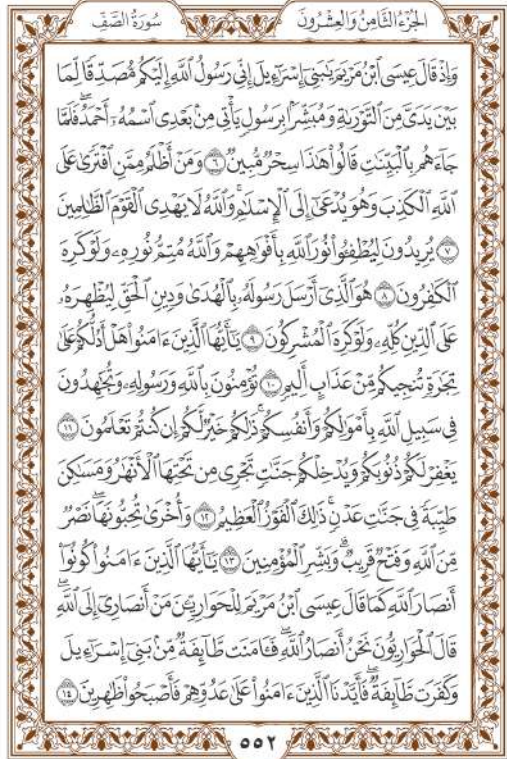 الجُزْءُ الثَّامِنُ وَالعِشْرُونَ
سُورَةُ الصَّفِّ
وَإِذْ قَالَ عِيسَى ٱبْنُ مَرْيَمَ يَٰبَنِىٓ إِسْرَٰٓءِيلَ إِنِّى رَسُولُ ٱللَّهِ إِلَيْكُم مُّصَدِّقًا لِّمَا
بَيْنَ يَدَىَّ مِنَ ٱلتَّوْرَىٰةِ وَمُبَشِّرًۢا بِرَسُولٍ يَأْتِى مِنۢ بَعْدِى ٱسْمُهُۥٓ أَحْمَدُۖ فَلَمَّا
جَآءَهُم بِٱلْبَيِّنَٰتِ قَالُوا۟ هَٰذَا سِحْرٌ مُّبِينٌ ٦ وَمَنْ أَظْلَمُ مِمَّنِ ٱفْتَرَىٰ عَلَى
ٱللَّهِ ٱلْكَذِبَ وَهُوَ يُدْعَىٰٓ إِلَى ٱلْإِسْلَٰمِۚ وَٱللَّهُ لَا يَهْدِى ٱلْقَوْمَ ٱلظَّٰلِمِينَ
٧ يُرِيدُونَ لِيُطْفِـُٔوا۟ نُورَ ٱللَّهِ بِأَفْوَٰهِهِمْ وَٱللَّهُ مُتِمُّ نُورِهِۦ وَلَوْ كَرِهَ
ٱلْكَٰفِرُونَ ٨ هُوَ ٱلَّذِىٓ أَرْسَلَ رَسُولَهُۥ بِٱلْهُدَىٰ وَدِينِ ٱلْحَقِّ لِيُظْهِرَهُۥ
عَلَى ٱلدِّينِ كُلِّهِۦ وَلَوْ كَرِهَ ٱلْمُشْرِكُونَ ٩ يَٰٓأَيُّهَا ٱلَّذِينَ ءَامَنُوا۟ هَلْ أَدُلُّكُمْ عَلَىٰ
تِجَٰرَةٍ تُنجِيكُم مِّنْ عَذَابٍ أَلِيمٍ ١٠ تُؤْمِنُونَ بِٱللَّهِ وَرَسُولِهِۦ وَتُجَٰهِدُونَ
فِى سَبِيلِ ٱللَّهِ بِأَمْوَٰلِكُمْ وَأَنفُسِكُمْۚ ذَٰلِكُمْ خَيْرٌ لَّكُمْ إِن كُنتُمْ تَعْلَمُونَ ١١
يَغْفِرْ لَكُمْ ذُنُوبَكُمْ وَيُدْخِلْكُمْ جَنَّٰتٍ تَجْرِى مِن تَحْتِهَا ٱلْأَنْهَٰرُ وَمَسَٰكِنَ
طَيِّبَةً فِى جَنَّٰتِ عَدْنٍۚ ذَٰلِكَ ٱلْفَوْزُ ٱلْعَظِيمُ ١٢ وَأُخْرَىٰ تُحِبُّونَهَاۖ نَصْرٌ
مِّنَ ٱللَّهِ وَفَتْحٌ قَرِيبٌۗ وَبَشِّرِ ٱلْمُؤْمِنِينَ ١٣ يَٰٓأَيُّهَا ٱلَّذِينَ ءَامَنُوا۟ كُونُوٓا۟
أَنصَارَ ٱللَّهِ كَمَا قَالَ عِيسَى ٱبْنُ مَرْيَمَ لِلْحَوَارِيِّۦنَ مَنْ أَنصَارِىٓ إِلَى ٱللَّهِۖ
قَالَ ٱلْحَوَارِيُّونَ نَحْنُ أَنصَارُ ٱللَّهِۖ فَـَٔامَنَت طَّآئِفَةٌ مِّنۢ بَنِىٓ إِسْرَٰٓءِيلَ
وَكَفَرَت طَّآئِفَةٌۖ فَأَيَّدْنَا ٱلَّذِينَ ءَامَنُوا۟ عَلَىٰ عَدُوِّهِمْ فَأَصْبَحُوا۟ ظَٰهِرِينَ ١٤
٥٥٢